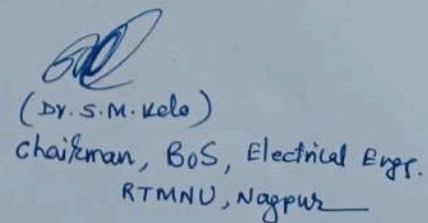 (Dr. S.M. Kelo)
Chairman, BoS, Electrical Engg.
RTMNU, Nagpur